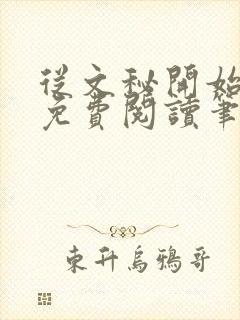 從文秘開始
免費閱讀筆
東升烏鴉哥